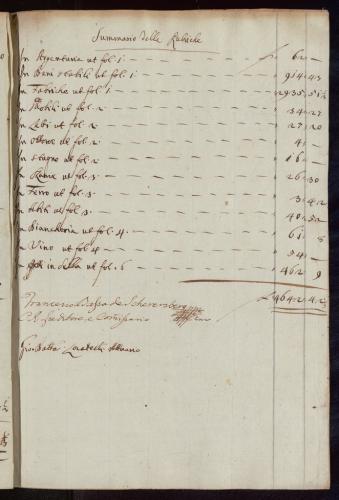 Summario delle Rubriche
In Argenteria ut fol: 1. 62 –
In Beni stabili ut fol: 1. 914 – 43
In Fabriche ut fol: 1 2935 – 51½
In Mobili ut fol: 2 34 – 27
In Letti ut fol: 2 27 – 20
In Ottone ut fol: 2 4 –
In Stagno ut fol: 2 16 –
In Rame ut fol: 3 26 – 30
In Ferro ut fol: 3 3 – 42
In Abiti ut fol: 3 40 – 52
In Biancheria ut fol: 4. 61 – 8
In Vino ut fol: 4 54 –
In ut fol: 6 462 – 9
Francesco de Schersberg
C. R. e Comissario
4642 – 42½
Gio: Batta